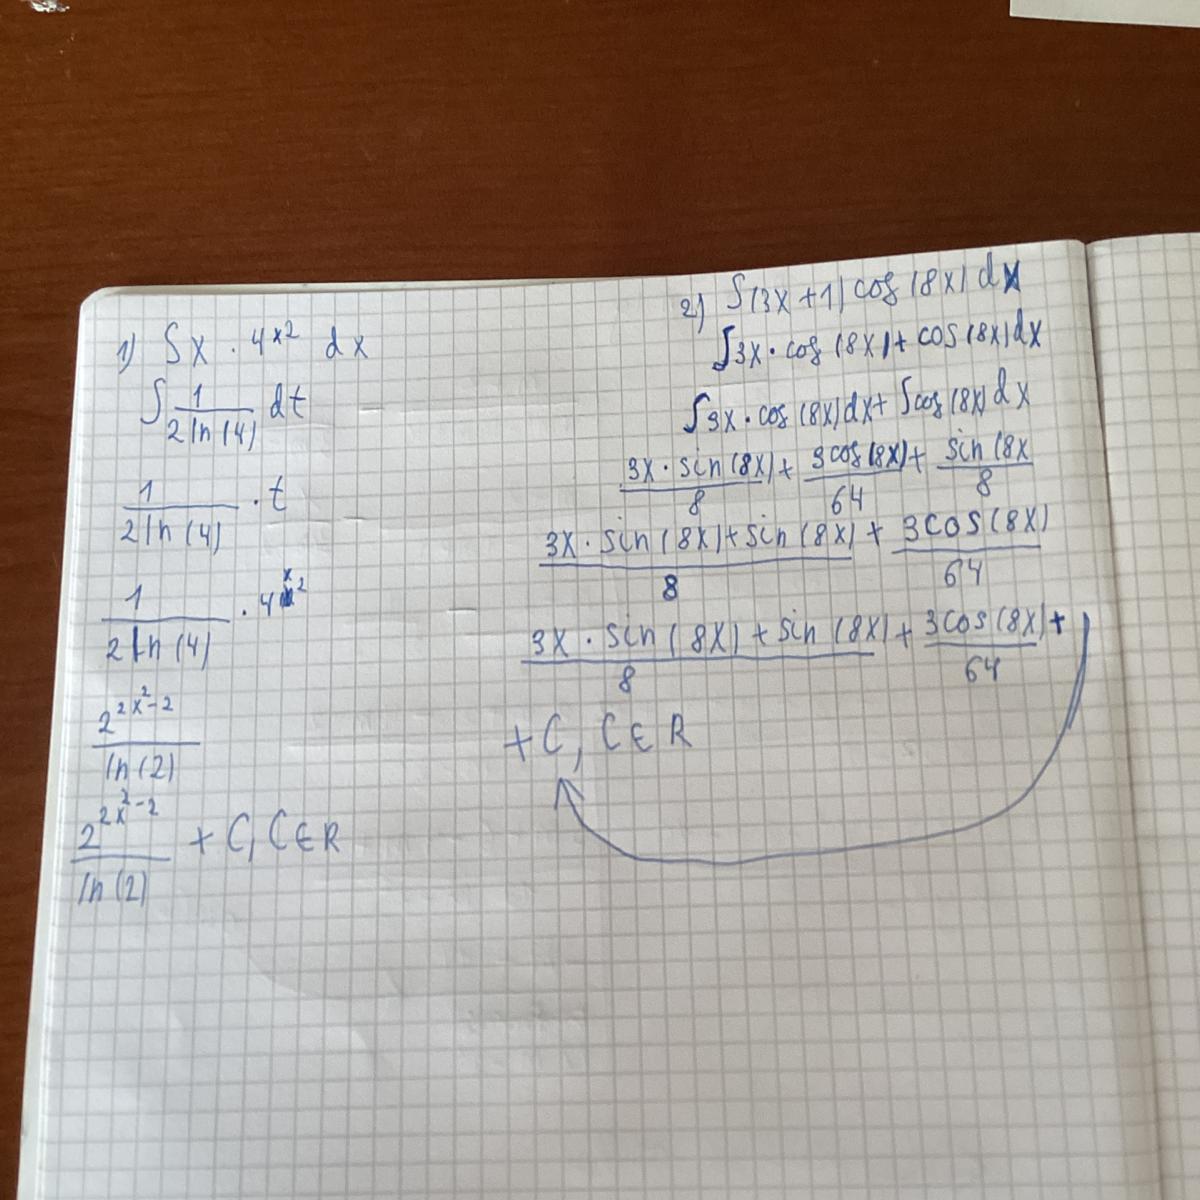 1) ∫x · 4^x² dx
∫ 1/(2ln(4)) dt
1/(2ln(4)) · t
1/(2ln(4)) · 4^x²
2^(2x²-2)/ln(2)
2^(2x²-2)/ln(2) + C, C∈R
2) ∫(3x+1) cos(8x) dx
∫3x · cos(8x) + cos(8x) dx
∫3x · cos(8x) dx + ∫cos(8x) dx
3x · sin(8x)/8 + 3cos(8x)/64 + sin(8x/8
3x · sin(8x) + sin(8x)/8 + 3cos(8x)/64
3x · sin(8x) + sin(8x)/8 + 3cos(8x)/64 +
+C, C∈R